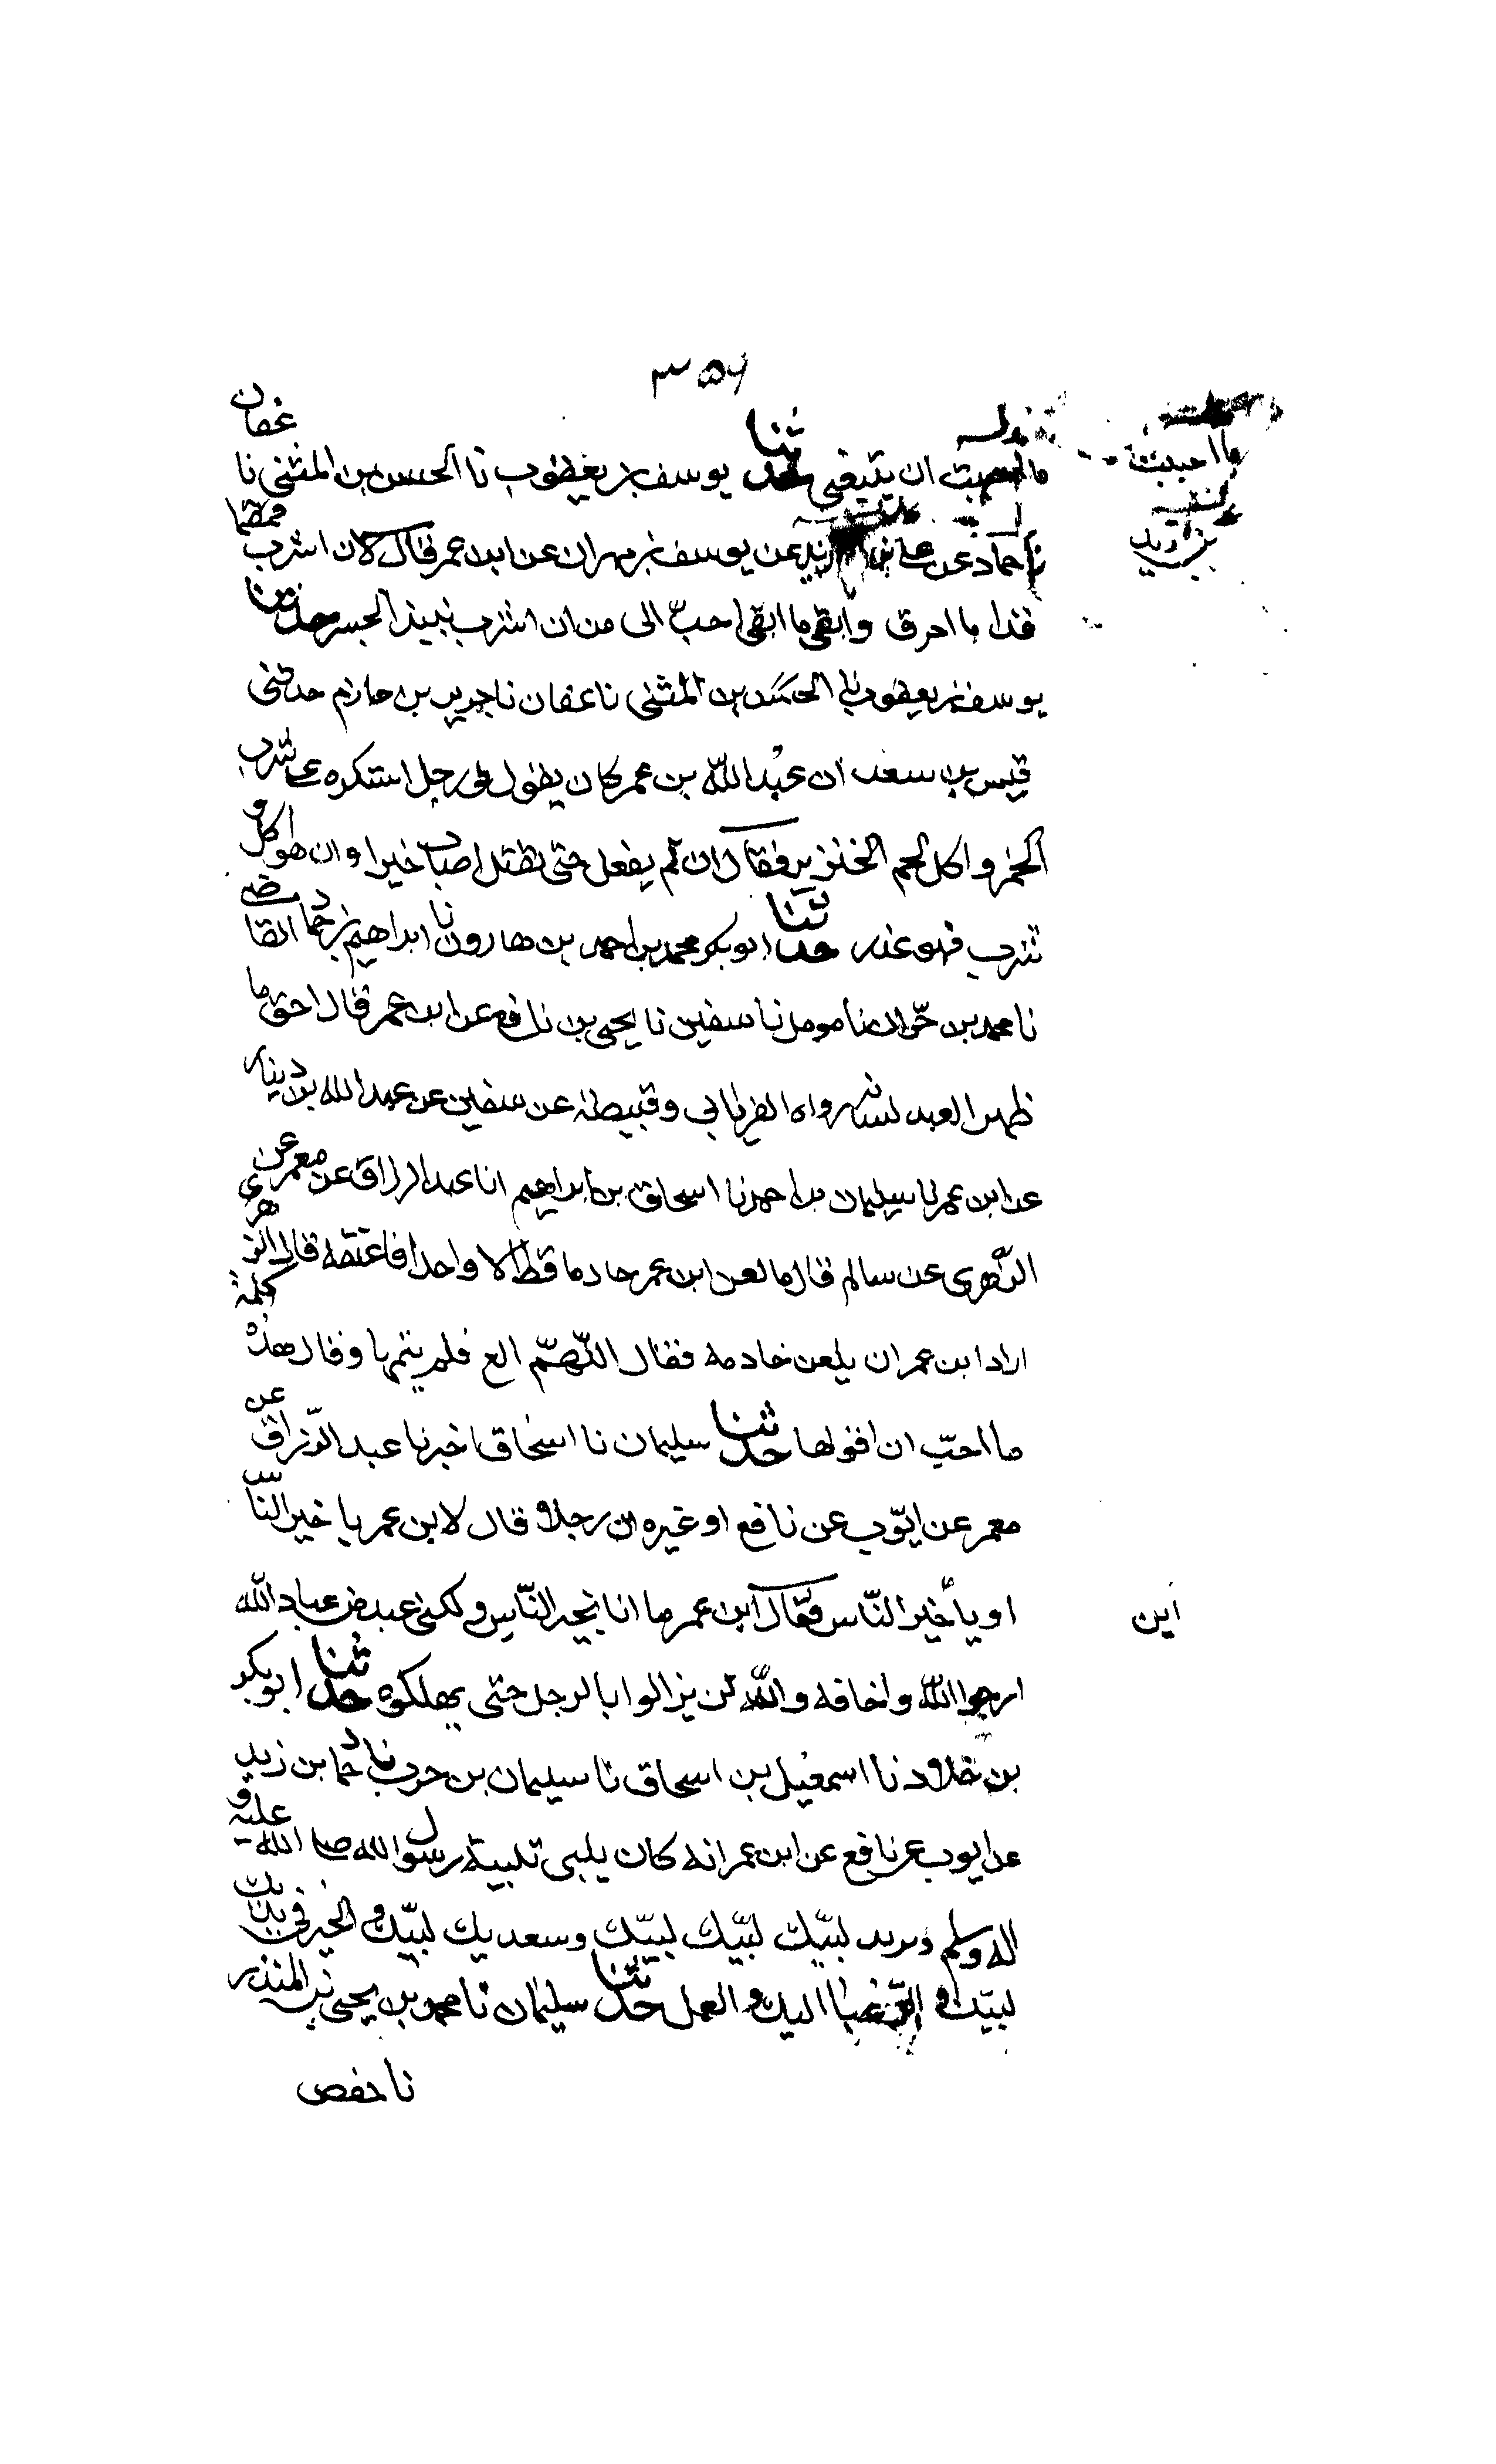 ٣٥٦
ما احببت ان يتبعنى حدثنا يوسف بن يعقوب نا الحسن بن المثنى نا عفان
نا حماد عن على بن زيد عن يوسف بن مهران عن ابن عمر قال لان اشرب قمقما
قد احرق ما احرق وابقى ما ابقى احبّ الى من ان اشرب نبيذ الجر حدثنا
يوسف بن يعقوب نا الحسن بن المثنى نا عفان نا جرير بن حازم حدثنى
قيس بن سعد ان عبد الله بن عمر كان يقول فى رجل استكره على شرب
الخمر واكل لحم الخنزير فقال ان لم يفعل حتى يقتل اصاب خيرا وان هو اكل و
شرب فهو عذر حدثنا ابو بكر محمد بن احمد بن هارون نا ابراهيم بن حماد القاضى
نا محمد بن نا مومل نا سفين نا يحيى بن نافع عن ابن عمر قال احق ما
طهر العبد لسانه رواه الفريابى وقبيصة عن سفين عن عبد الله بن دينار
عن ابن عمر نا سليمان بن احمد نا اسحاق بن ابراهيم انا عبد الرزاق عن معمر عن
الزهرى عن سالم قال ما لعن ابن عمر خادما قط الا واحدا فاعتقه قال الزهرى
اراد ابن عمر ان يلعن خادمه فقال اللّهمّ الع فلم يتمها وقال هذه كلمة
ما احبّ ان اقولها حدثنا سليمان نا اسحاق اخبرنا عبد الرّزاق عن
معمر عن ايّوب عن نافع او غيره ان رجلا قال لابن عمر يا خير النّاس
او يا خير النّاس فقال ابن عمر ما انا بخير النّاس ولكنى عبد من عباد الله
ابن
ارجوا الله واخافه والله لن يزالوا بالرجل حتى يهلكوه حدثنا ابو بكر
بن خلاد نا اسمعيل بن اسحاق نا سليمان بن حرب نا حماد بن زيد
عن ايوب عن نافع عن ابن عمر انه كان يلبى تلبية رسول الله صلى الله عليه و
اله وسلم ويزيد لبيّك لبيّك لبيّك وسعديك لبيّك والخير فى يديك
لبيّك و اليك والعمل حدثنا سليمان نا محمد بن يحيى بن المنذر
نا حفص